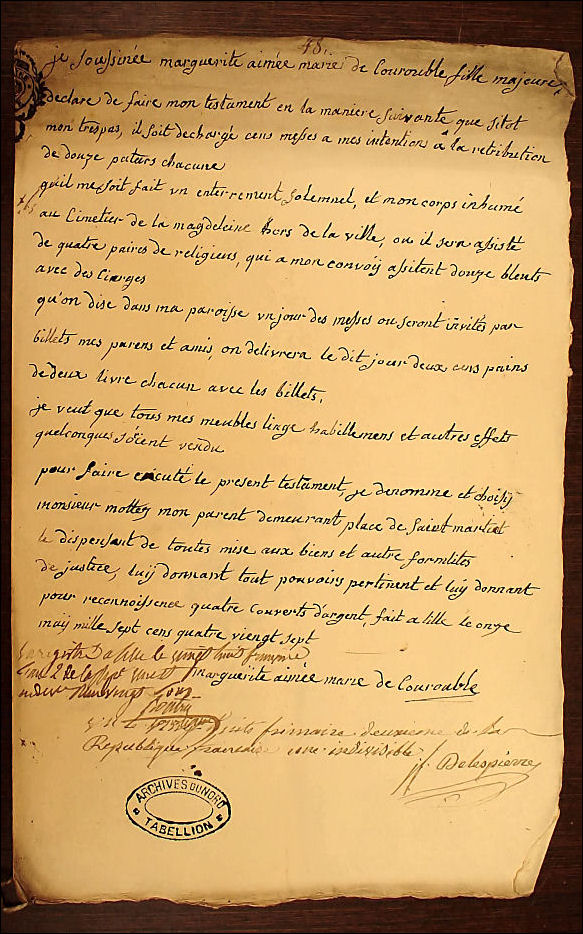 48.
je soussinée marguerite aimée marie de Courouble fille majeure,
declare de faire mon testament en la maniere suivante que sitot
mon trespas, il soit dechargé cens messes a mes intention à la retribution
de douze patars chacune
quil me soit fait vn enterrement solemnel, et mon corps inhumé
au Cimetier de la magdeleine hors de la ville, ou il sera assisté
de quatre paires de religieux, qui a mon convoÿ assitent douze bleuts
avec des Cierges
qu'on dise dans ma paroisse vn jour des messes ou seront invités par
billets mes parens et amis, on delivrera le dit jour deux cens pains
de deux livre chacun avec les billets,
je veut que tous mes meubles linge habillemens et autres effets
quelconques soient vendu
pour faire executé le present testament, je denomme et choisÿ
monsieur mottez mon parent demeurant place de Saint martin
le dispensant de toutes mise aux biens et autre formlites
de justice, luiÿ donnant tout pouvoirs pertinent et luiÿ donnant
pour reconnoissence quatre couverts d'argent, fait a lille le onze
maiÿ mille sept cens quatre viengt sept
marguerite aimée marie de Courouble
Enregistré a lille le vingt huit frimaire
huits frimaire deuxieme de la
Republique francaise une indivisible
Delespierre
ARCHIVES DU NORD
TABELLION